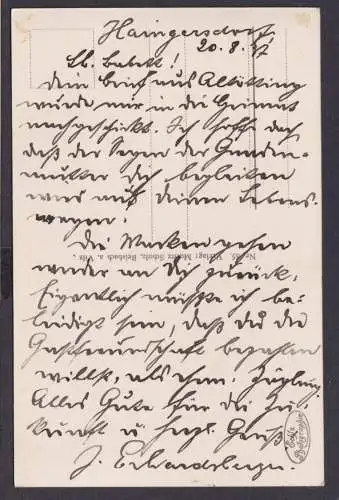 Haingersdorf
20. 8. 37
Lb. Babett!
Dein Brief aus Altötting
wurde mir in die Heimat
nachgeschickt. Ich hoffe doch,
daß der Segen der Gnaden-
mutter dich begleiten
wird auf deinen Lebens-
wegen!
Die Marken gehen
wieder an Dich zurück.
Eigentlich müßte ich be-
leidigt sein, daß du die
Gastfreundschaft bezahlen
willst, als ehem. Zögling.
Alles Gute für die Zu-
kunft u. herzl. Gruß
J.
Verlag: Moritz Scholz, Reisbach a. Vils.
Echte Photographie